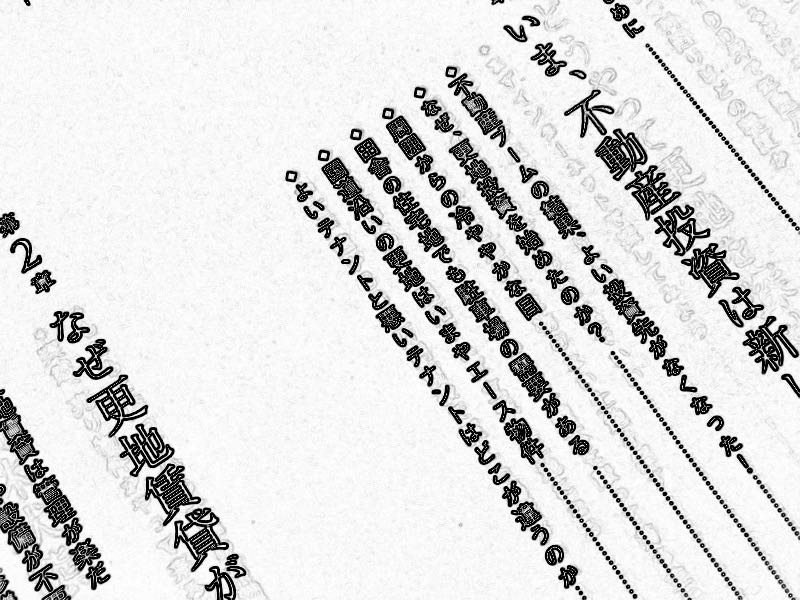 めに
いま、不動産投資は新し
◇不動産ブームの結果、よい投資先がなくなった！
◇なぜ、更地投資を始めたのか？
◇周囲からの冷ややかな目
◇田舎の住宅地でも駐車場の需要がある
◇国道沿いの更地はいまやエース物件
◇よいテナントと悪いテナントはどこが違うのか
第2章 なぜ更地賃貸が
地賃貸は管理が楽だ
設備が不要